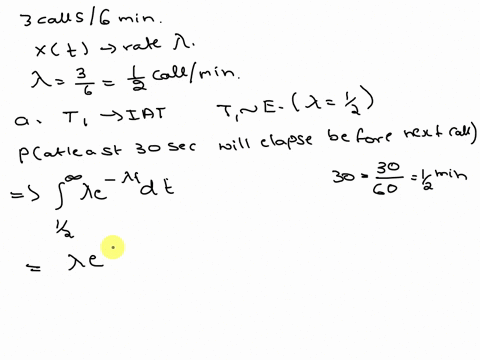 3 calls/6 min.
x(t) → rate λ.
λ = 3/6 = 1/2 call/min.
a. T₁ → IAT T₁ ~ E. (λ = 1/2)
P(atleast 30 sec will elapse before next call)
=> ∫_{1/2}^{∞} λe^{-λt} dt 30 = 30/60 = 1/2 min
= λe